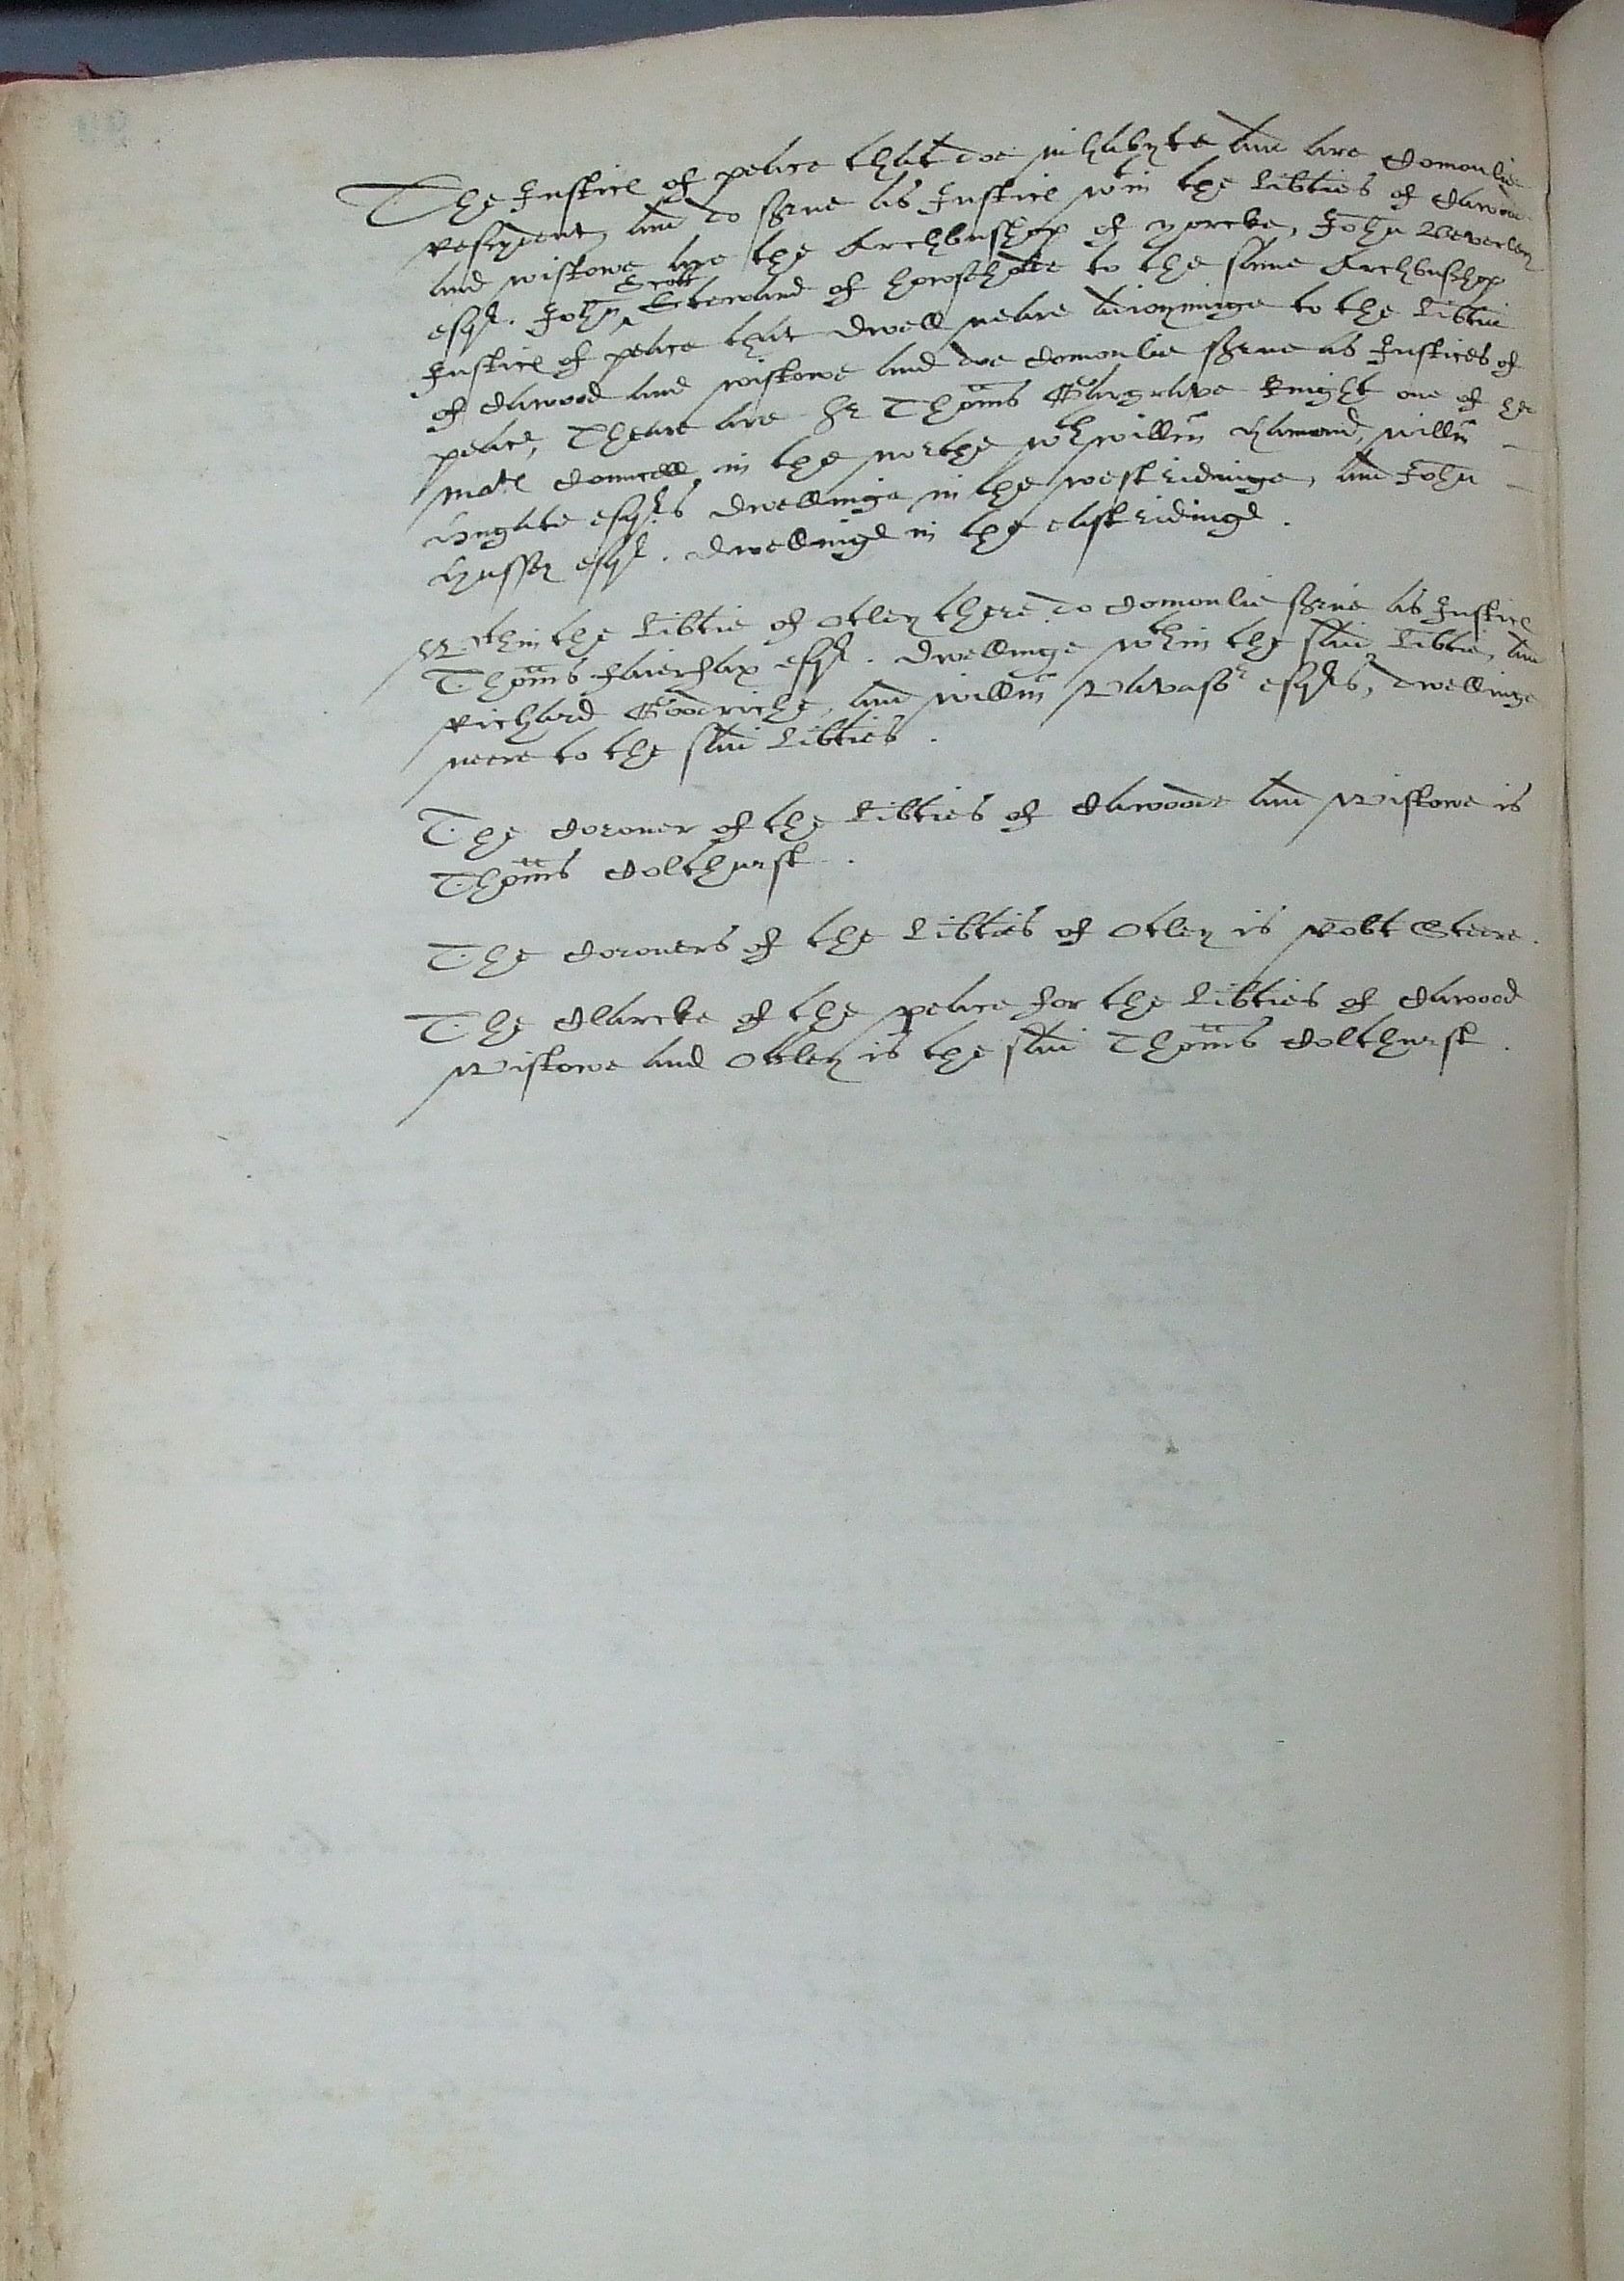 The Justice of peace that doe inhabyte and are Comonlie
resydent, and do Serve as Justice wtin the Libties of Cawood
and wistowe are the Archbusshop of yorcke, John Beverley
esqr. John Scott Steward of howsholde to the same Archbusshop
Justice of peace that dwell neare adioyninge to the Libtie
of Cawood and wistowe and doe Comonlie Serve as Justices of
peace, Theare are Sr Thoms Gargrave knight one of her
mats Councell in the northe wth willm Hamond, willm
Hungate esqrs dwellinge in the westridinge, and John
Hussey esqr. dwellinge in the eastridinge.
Wthin the Libtie of Otley there do Comonlie Serve as Justice
Thoms fairfax esqr. dwellinge wthin the said Libtie, and
Richard Goodriche, and willm Vavasor esqrs, dwellinge
neere to the said Libties.
The Coroner of the Libties of Cawoode and Wistowe is
Thoms Colthurst.
The Coroners of the Libties of Otley is Robt Steere.
The Clarcke of the peace for the Libties of Cawood
Wistowe and Otley is the said Thoms Colthurst.